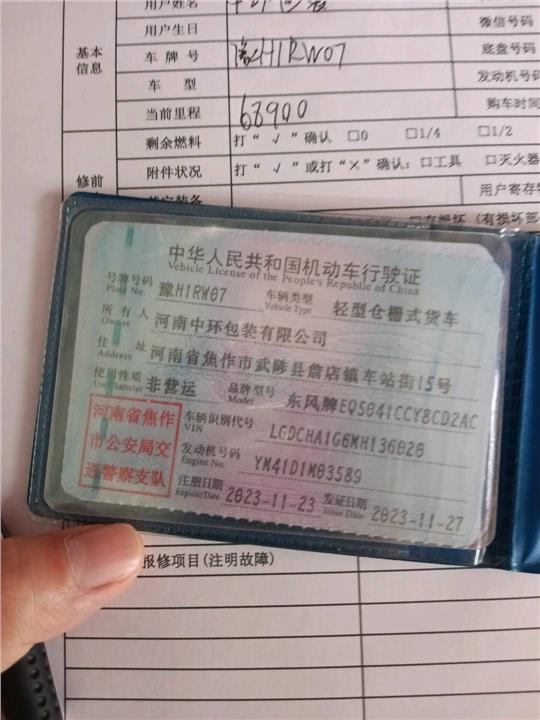 用户姓名
用户生日
微信号码
基本信息
车牌号 豫H1RW07
底盘号码
车型
发动机号码
当前里程 68900
购车时间
剩余燃料 打“√”确认 □0 □1/4 □1/2
附件状况 打“√”或打“×”确认: □工具 □灭火器
修前
用户寄存
中华人民共和国机动车行驶证
Vehicle License of the People's Republic of China
号牌号码 豫H1RW07 车辆类型 轻型仓栅式货车
Plate No. Vehicle Type
所有人 河南中环包装有限公司
Owner
住址 河南省焦作市武陟县詹店镇车站街15号
Address
使用性质 非营运 品牌型号 东风牌EQ5041CCY8CD2AC
Use Character Model
河南省焦作市公安局交通警察支队
车辆识别代号 LGDCHA1G6MH136020
VIN
发动机号码 YM41D1M03589
Engine No.
注册日期 2023-11-23 发证日期 2023-11-27
Register Date Issue Date
报修项目(注明故障)